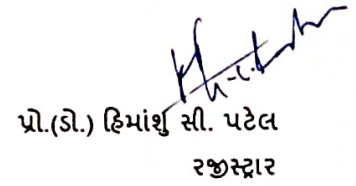 પ્રો.(ડો.) હિમાંશુ સી. પટેલ
રજીસ્ટ્રાર